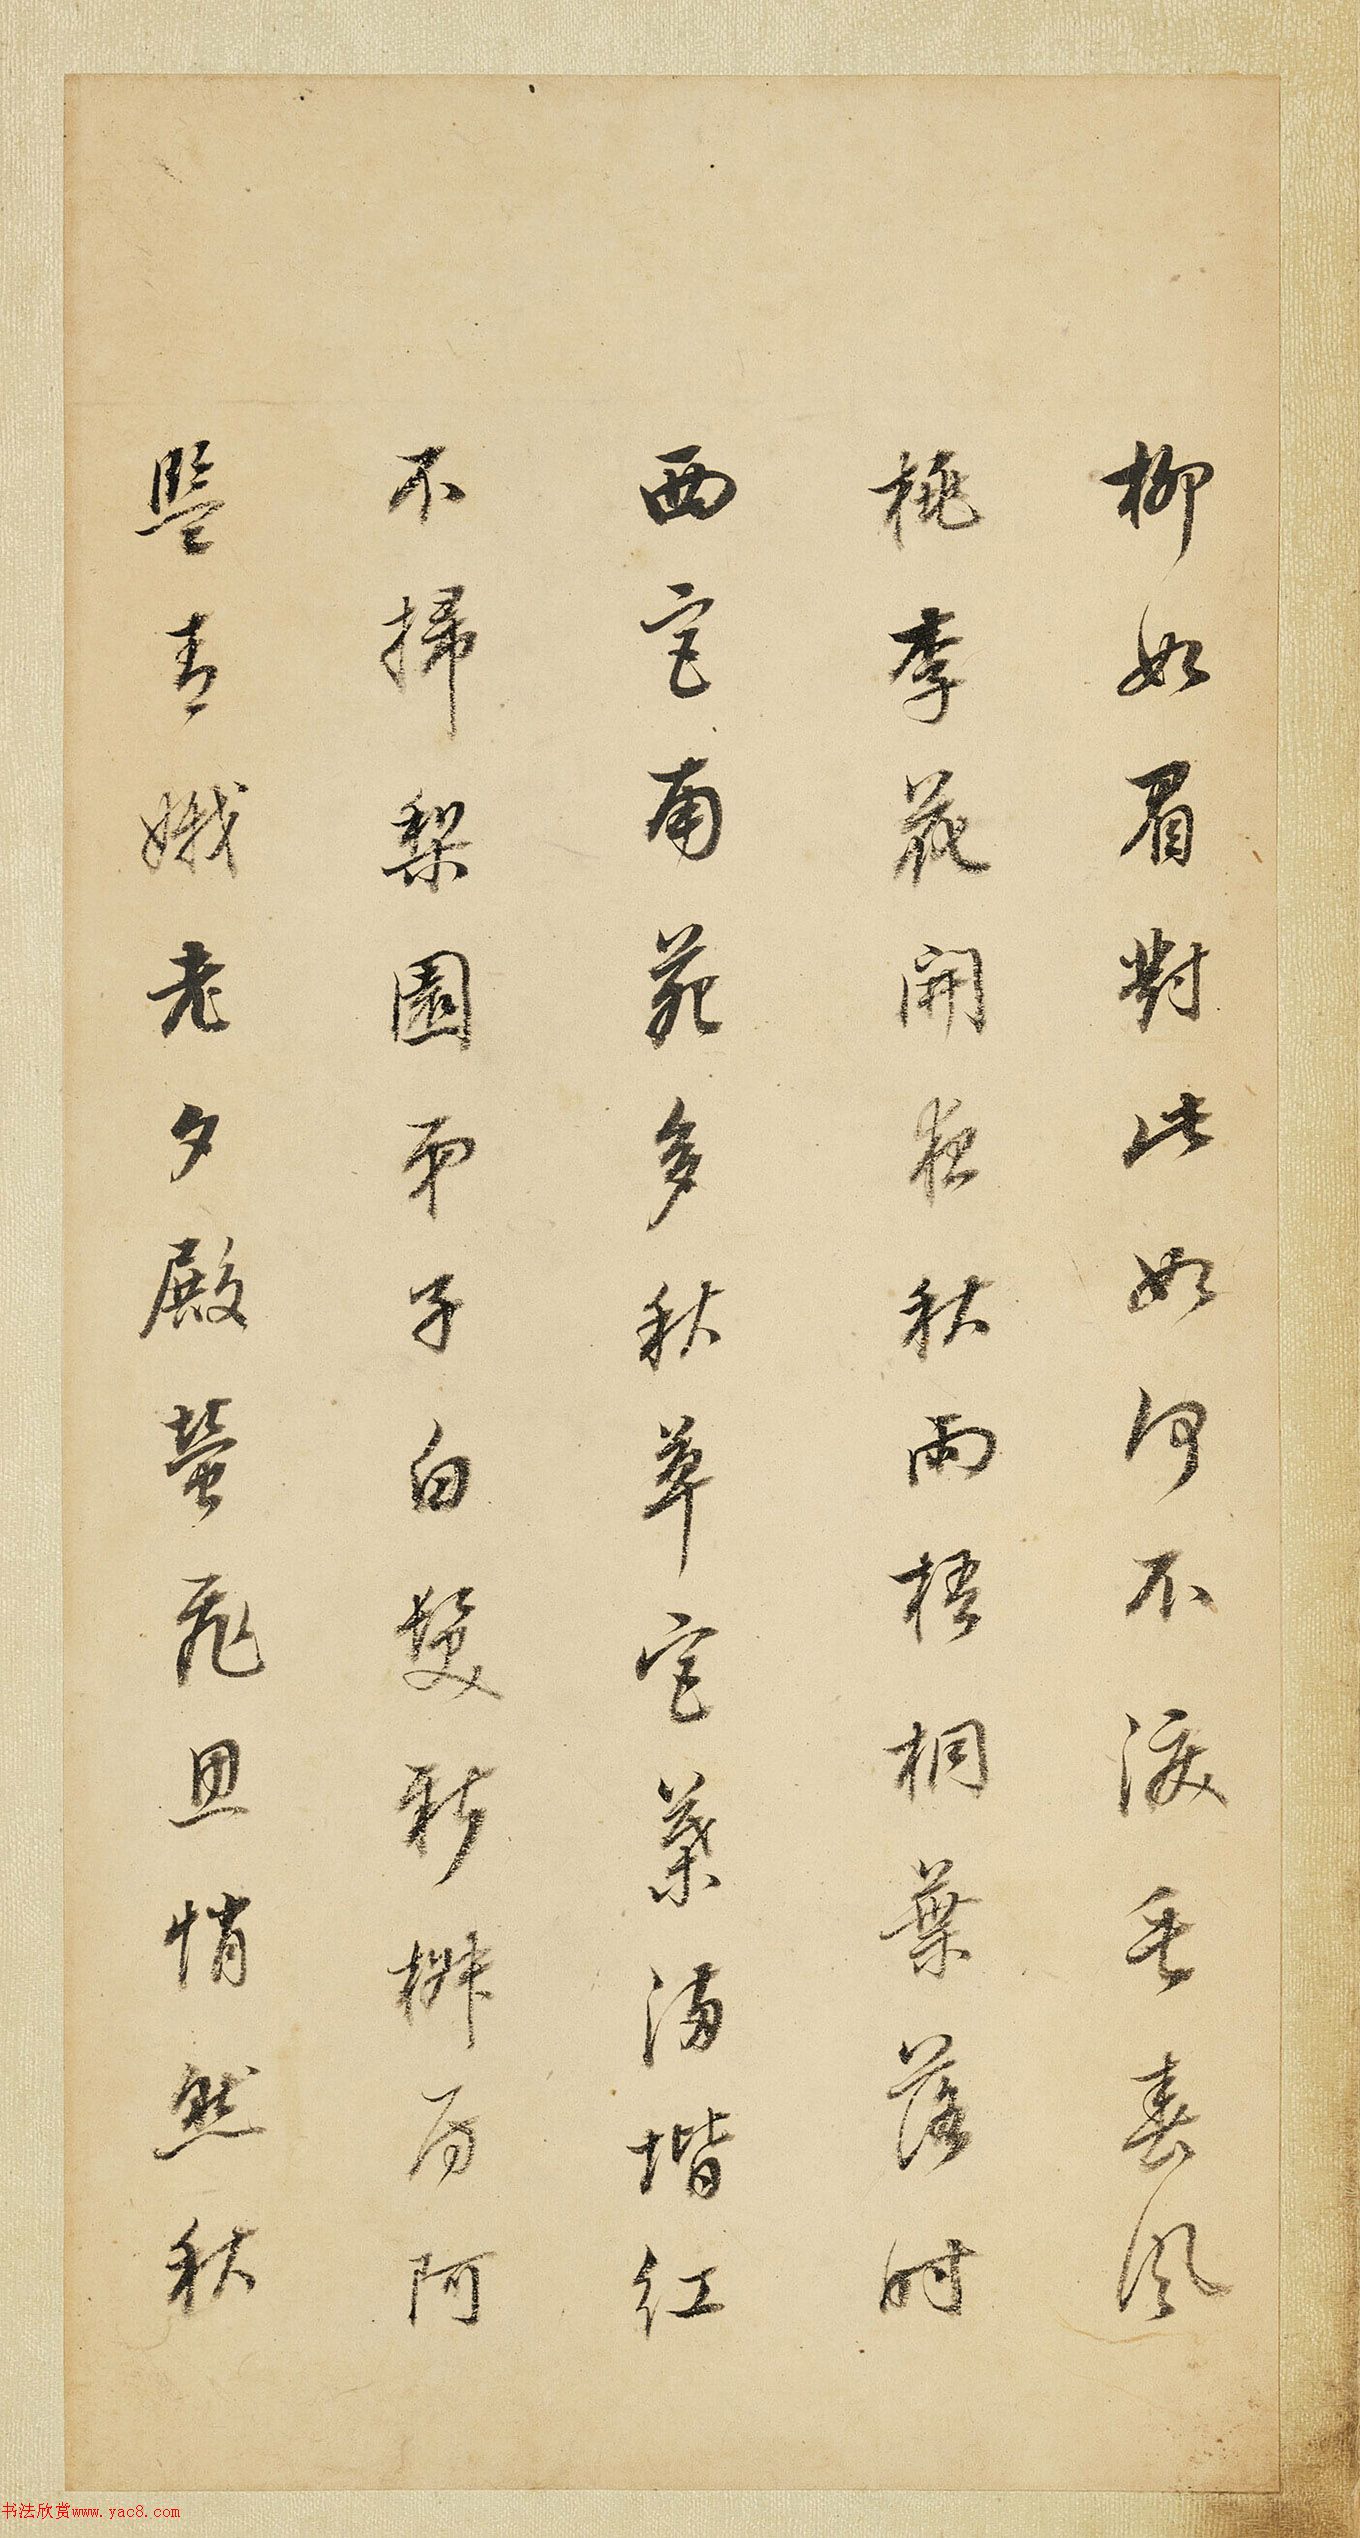 柳如眉對此如何不淚垂春風
桃李花開夜秋雨梧桐葉落時
西宮南苑多秋草宮葉滿堦紅
不掃梨園弟子白髮新椒房阿
監青娥老夕殿螢飛思悄然秋
书法欣赏www.yac8.com